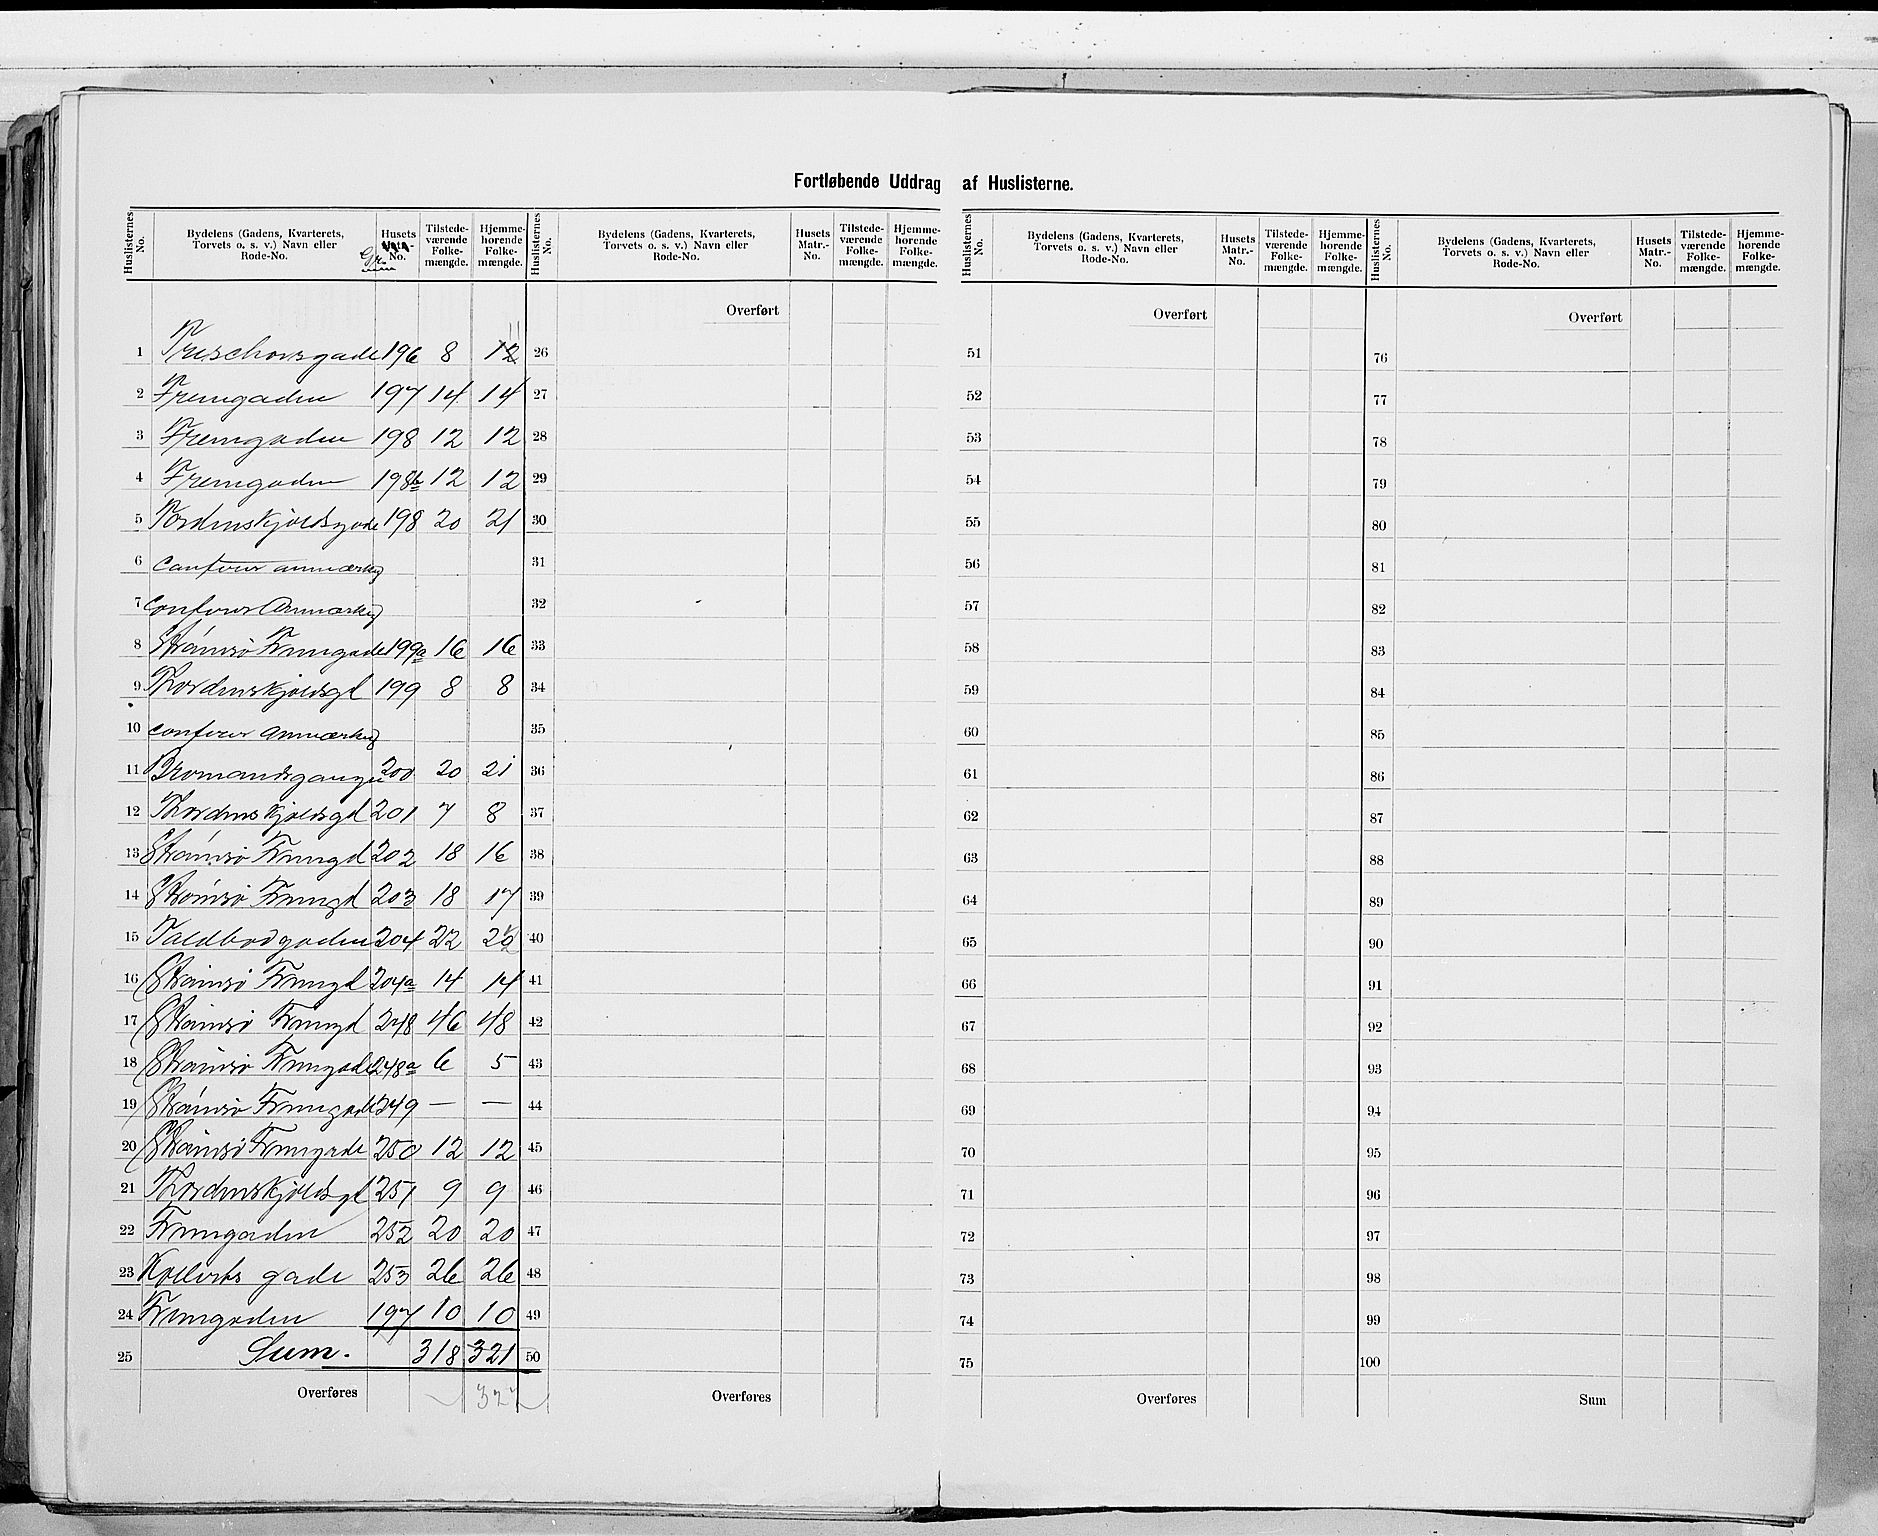 Fortløbende Uddrag af Huslisterne.
Huslisternes No. Bydelens (Gadens, Kvarterets, Torvets o. s. v.) Navn eller Rode-No. Husets Gr. No. Tilstedeværende Folkemængde. Hjemmehørende Folkemængde.
Huslisternes No. Bydelens (Gadens, Kvarterets, Torvets o. s. v.) Navn eller Rode-No. Husets Matr.-No. Tilstedeværende Folkemængde. Hjemmehørende Folkemængde.
Huslisternes No. Bydelens (Gadens, Kvarterets, Torvets o. s. v.) Navn eller Rode-No. Husets Matr.-No. Tilstedeværende Folkemængde. Hjemmehørende Folkemængde.
Huslisternes No. Bydelens (Gadens, Kvarterets, Torvets o. s. v.) Navn eller Rode-No. Husets Matr.-No. Tilstedeværende Folkemængde. Hjemmehørende Folkemængde.
Overført Overført Overført
11
1 Treschowsgade 196 8 12 26 51 76
2 Fremgaden 197 14 14 27 52 77
3 Fremgaden 198 12 12 28 53 78
4 Fremgaden 198b 12 12 29 54 79
5 Tordenskjoldsgade 198 20 21 30 55 80
6 confever anmærkg 31 56 81
7 confever Anmærkg 32 57 82
8 Strømsø Fremgade 199a 16 16 33 58 83
9 Thordenskjoldsgd 199 8 8 34 59 84
10 confever Anmærkg 35 60 85
11 Bromandsgangen 200 20 21 36 61 86
12 Thordenskjoldsgd 201 7 8 37 62 87
13 Strømsø Fremgd 202 18 16 38 63 88
14 Strømsø Fremgd 203 18 17 39 64 89
15 Toldbodgaden 204 22 40 65 90
16 Strømsø Fremgd 204a 14 14 41 66 91
17 Strømsø Fremgd 248 46 48 42 67 92
18 Strømsø Fremgade 248a 6 5 43 68 93
19 Strømsø Fremgade 249 — — 44 69 94
20 Strømsø Fremgade 250 12 12 45 70 95
21 Thordenskjoldsgd 251 9 9 46 71 96
22 Fremgaden 252 20 20 47 72 97
23 gade 253 26 26 48 73 98
24 Fremgaden 197 10 10 49 74 99
25 Sum. 318 321 50 75 100
Overføres 322 Overføres Overføres Sum